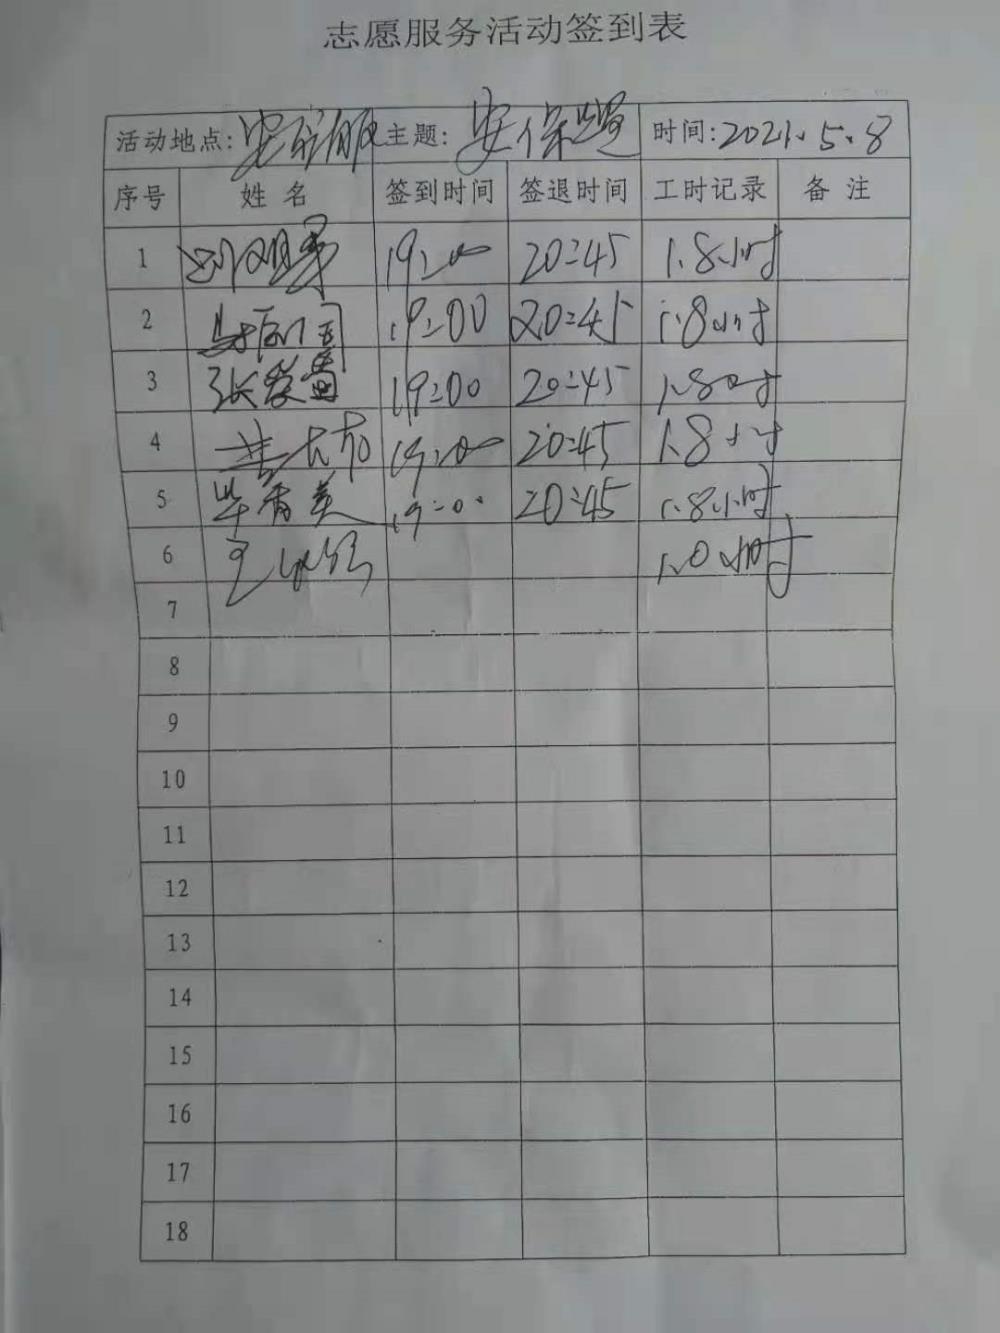 志愿服务活动签到表
活动地点: 主题: 安保 时间:2021.5.8
序号 姓名 签到时间 签退时间 工时记录 备注
1 19:00 20:45 1.8小时
2 19:00 20:45 1.8小时
3 张爱 19:00 20:45 1.8小时
4 19:00 20:45 1.8小时
5 毕秀美 19:00 20:45 1.8小时
6 王 1.0小时
7
8
9
10
11
12
13
14
15
16
17
18